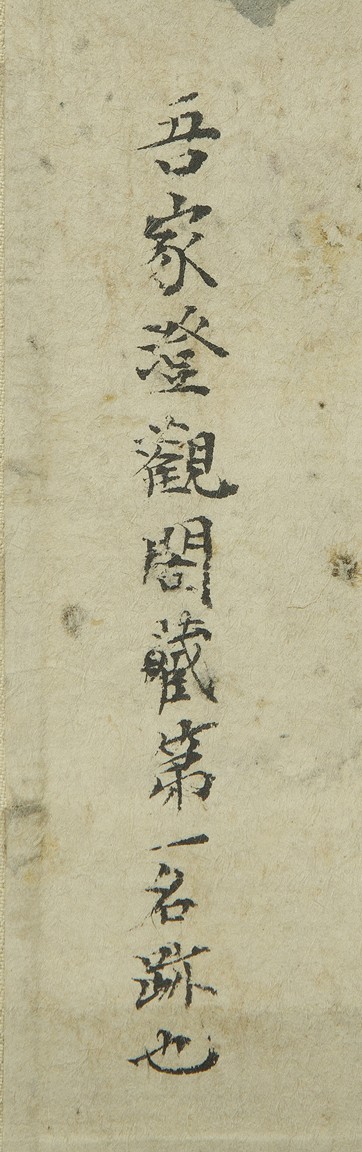 吾家澄觀閣藏第一名跡也